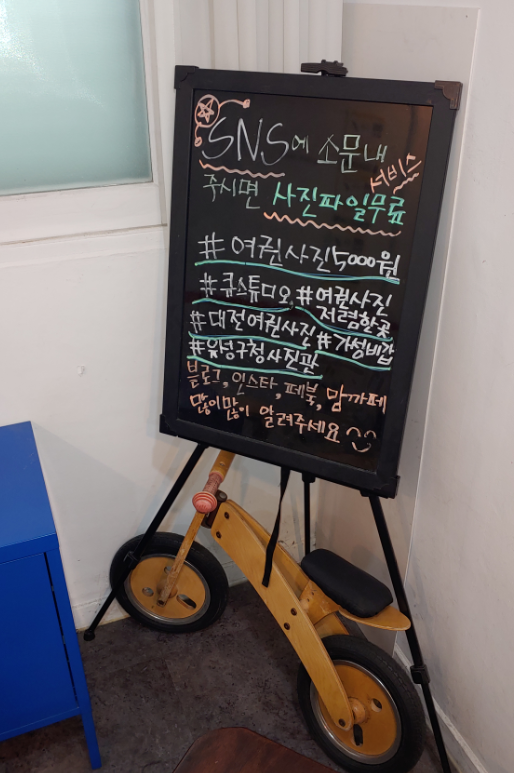 SNS에 소문내
주시면 사진파일무료 서비스
#여권사진5000원
#큐스튜디오, #여권사진
저렴한곳
#대전여권사진 #가성비갑
#유성구청사진관
블로그, 인스타, 페북, 맘까페
많이많이 알려주세요